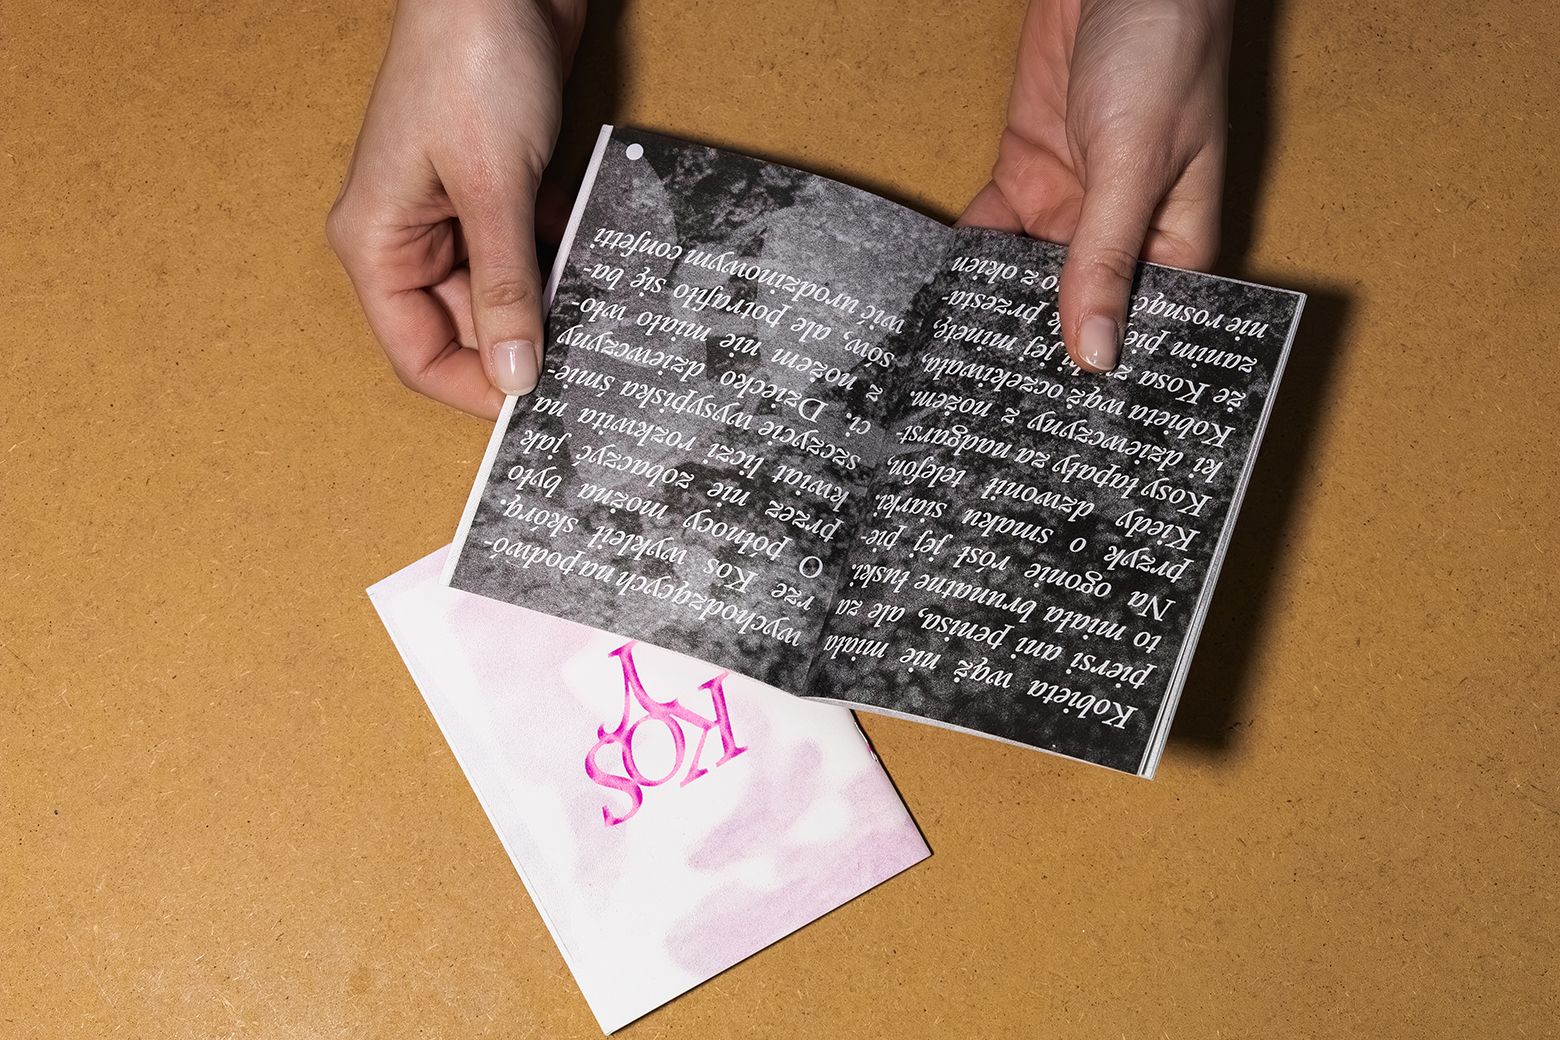 Kobieta wąż nie miała
piersi ani penisa, ale za
to miała brunatne łuski.
Na ogonie rósł jej pie-
przyk o smaku siarki.
Kiedy dzwonił telefon,
Kosy łapały za nadgarst-
ki dziewczyny z nożem.
Kobieta wąż oczekiwała,
że Kosa jej minetę,
zanim przesta-
nie rosnąć z okien
wychodzących na podwó-
rze Kos wykleił skórą.
O północy można było
przez nie zobaczyć jak
kwiat liczi rozkwita na
szczycie wysypiska śmie-
ci. Dziecko dziewczyny
z nożem nie miało wło-
sów, ale potrafiło się ba-
wić urodzinowym confetti
KOS
Y